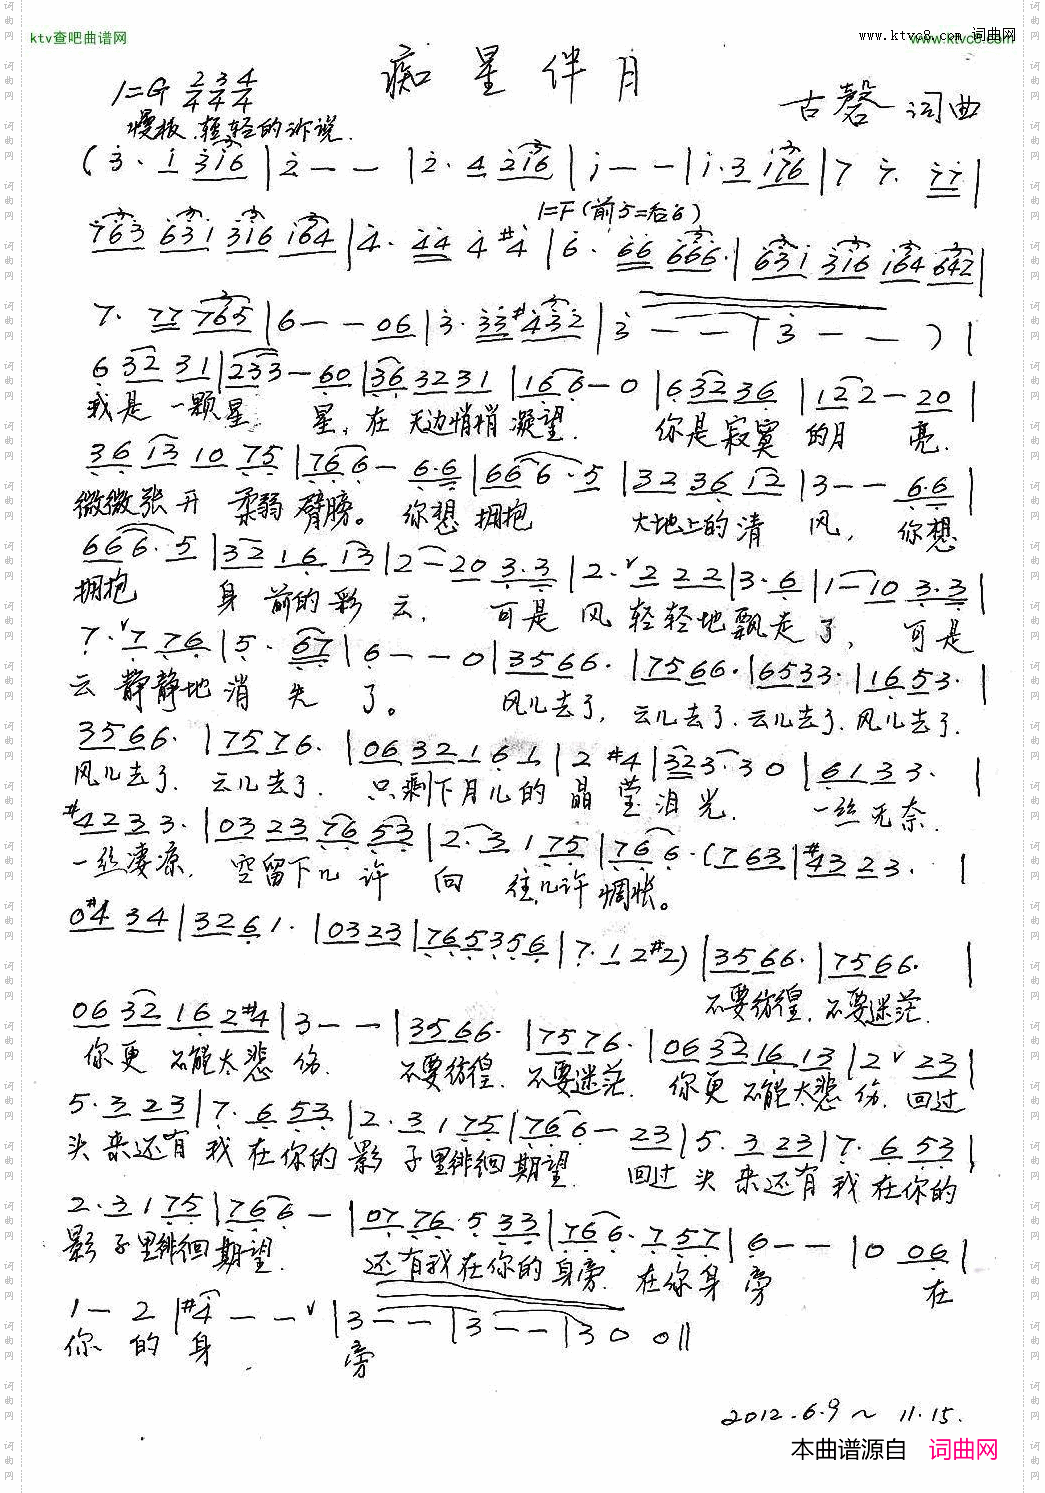 ktv查吧曲谱网
www.ktvc8.com 词曲网
痴星伴月
1=G 2/4 3/4 4/4
古磬 词曲
慢板 轻轻的诉说.
(3· 1 316 | 2 - - | 2· 4 216 | 1 - - | 1· 3 176 | 7 7· 77 |
1=F (前5=后6)
763 631 316 164 | 4· 44 4 #4 | 6· 66 666· | 631 316 164 642 |
7· 77 765 | 6 - - 06 | 3· 33 #432 | 3 - - | 3 - - ) |
6 32 31 | 233 - 60 | 36 3231 | 166 - 0 | 6 32 36 | 122 - 20 |
我是 一颗星 星, 在 天边悄悄 凝望. 你是寂寞 的月 亮.
36 13 10 75 | 766 - 6·6 | 66 6·5 | 32 36 12 | 3 - - 6·6 |
微微张开 柔弱 臂膀。 你想 拥抱 大地上的清 风, 你想
66 6·5 | 32 16 13 | 2 - 20 3·3 | 2·ˇ2 22 | 3·6 | 1 - 10 3·3 |
拥抱 身 前的彩 云, 可是 风 轻轻地飘走了, 可是
7·ˇ7 76 | 5· 67 | 6 - - 0 | 3566· | 7566· | 6533· | 1653· |
云 静静地 消 失 了。 风儿去了, 云儿去了. 云儿去了. 风儿去了.
3566· | 7576· | 06 32 1 6 1 | 2 #4 | 323·30 | 6133· |
风儿去了. 云儿去了. 只剩下月儿的 晶 莹泪光. 一丝无奈.
#4233· | 03 23 76 53 | 2·3 1 75 | 766·(763 | #4323· |
一丝凄凉, 空留下几 许 向 往,几许惆怅。
0#4 34 | 3261· | 0323 | 765356 | 7·12#2) | 3566· | 7566· |
不要彷徨. 不要迷茫.
06 32 16 2#4 | 3 - - | 3566· | 7576· | 06 32 16 13 | 2ˇ23 |
你更 不能太悲 伤. 不要彷徨. 不要迷茫. 你更 不能太悲 伤. 回过
5·3 23 | 7·6 53 | 2·3 1 75 | 766 - 23 | 5·3 23 | 7·6 53 |
头来还有 我在你的 影 子里徘徊期望. 回过 头来还有 我在你的
2·3 1 75 | 766 - | 07 76·5 33 | 766·757 | 6 - - | 0 06 |
影 子里徘徊期望. 还有我在你的身旁. 在你身 旁 在
1 - 2 | #4 - - ˇ | 3 - - | 3 - - | 3 0 0 ||
你 的 身 旁
2012.6.9 ~ 11.15.
本曲谱源自 词曲网